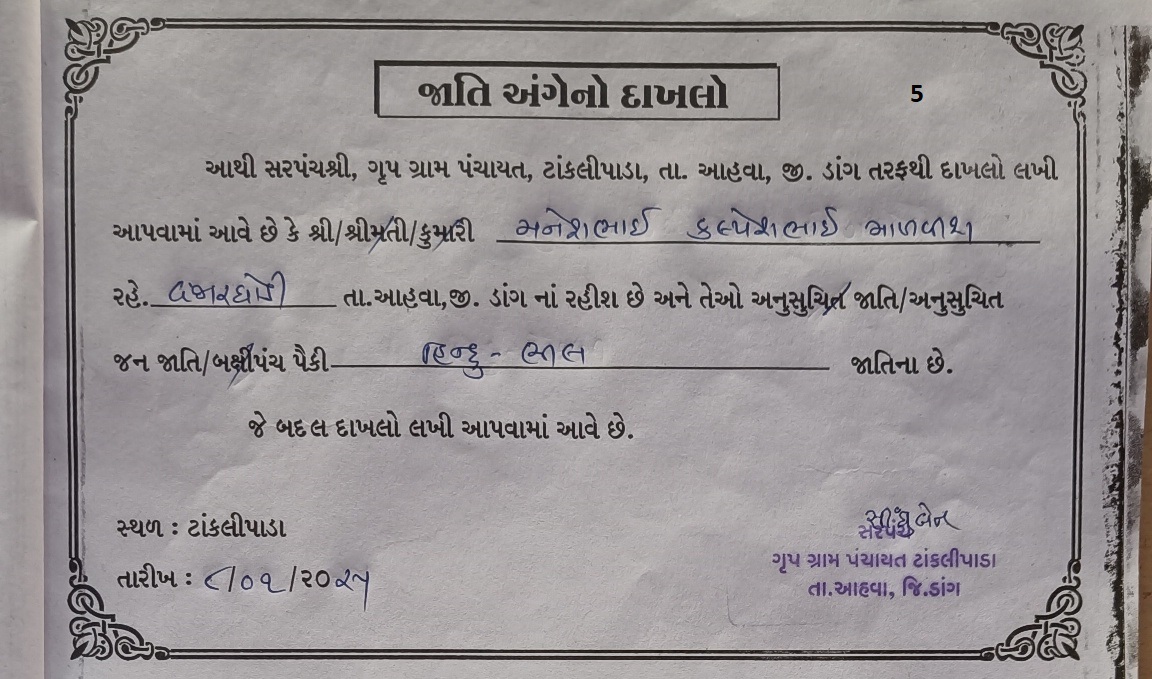 જાતિ અંગેનો દાખલો
5
આથી સરપંચશ્રી, ગૃપ ગ્રામ પંચાયત, ટાંકલીપાડા, તા. આહવા, જી. ડાંગ તરફથી દાખલો લખી
આપવામાં આવે છે કે શ્રી/શ્રીમતી/કુમારી મનેશભાઈ કલ્પેશભાઈ
રહે. તા.આહવા,જી. ડાંગ નાં રહીશ છે અને તેઓ અનુસુચિત જાતિ/અનુસુચિત
જન જાતિ/બક્ષીપંચ પૈકી હિન્દુ - ભીલ જાતિના છે.
જે બદલ દાખલો લખી આપવામાં આવે છે.
સ્થળ : ટાંકલીપાડા
તારીખ : ૯/૦૧/૨૦૨૫
સરપંચ
ગૃપ ગ્રામ પંચાયત ટાંકલીપાડા
તા.આહવા, જિ.ડાંગ